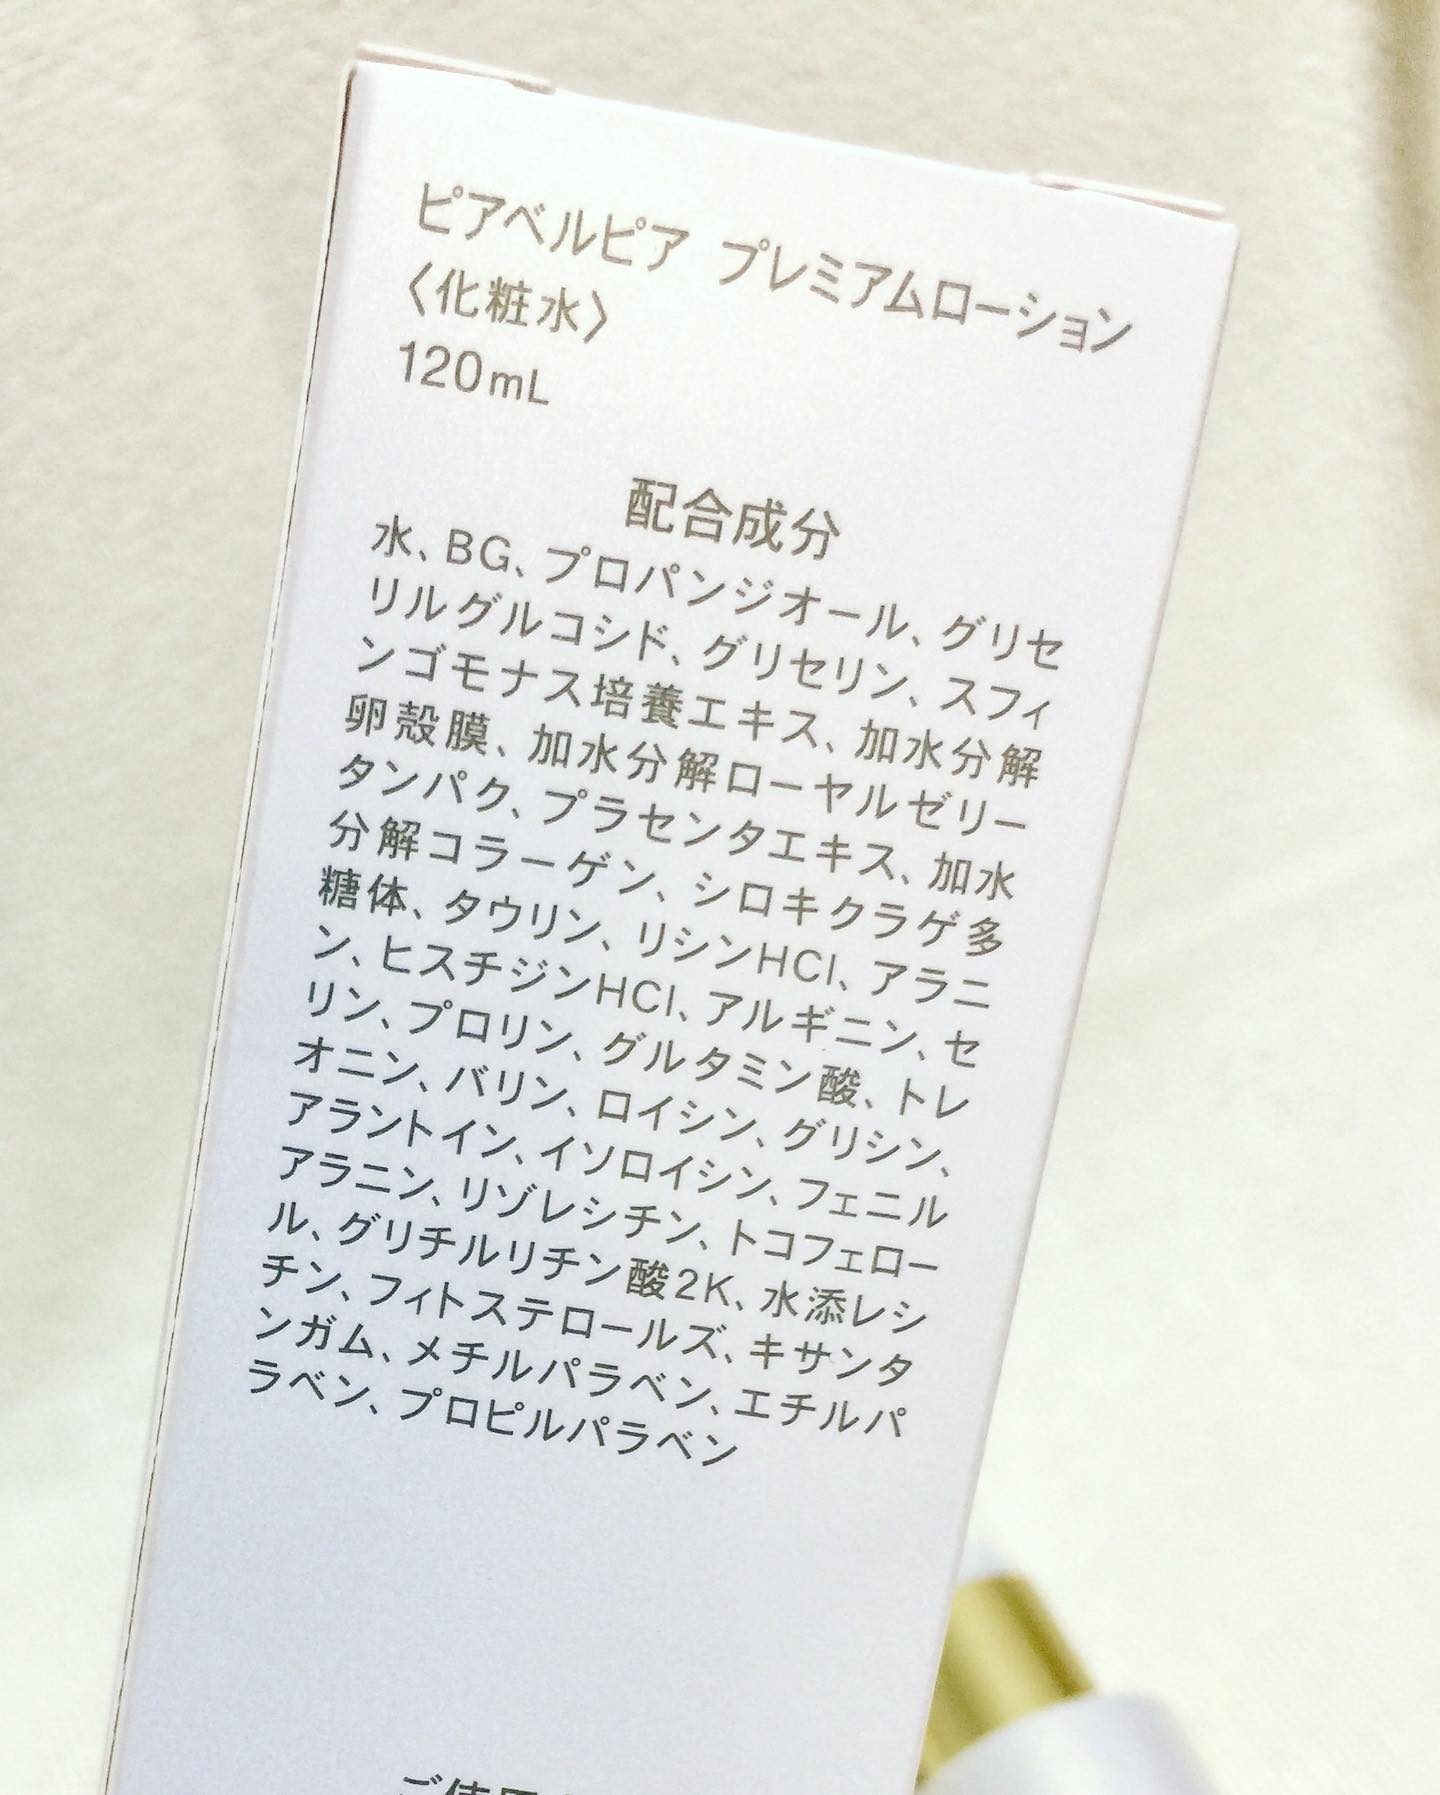 ピアベルピア プレミアムローション
〈化粧水〉
120mL
配合成分
水、BG、プロパンジオール、グリセ
リルグルコシド、グリセリン、スフィ
ンゴモナス培養エキス、加水分解
卵殻膜、加水分解ローヤルゼリー
タンパク、プラセンタエキス、加水
分解コラーゲン、シロキクラゲ多
糖体、タウリン、リシンHCl、アラニ
ン、ヒスチジンHCl、アルギニン、セ
リン、プロリン、グルタミン酸、トレ
オニン、バリン、ロイシン、グリシン、
アラントイン、イソロイシン、フェニル
アラニン、リゾレシチン、トコフェロー
ル、グリチルリチン酸2K、水添レシ
チン、フィトステロールズ、キサンタ
ンガム、メチルパラベン、エチルパ
ラベン、プロピルパラベン